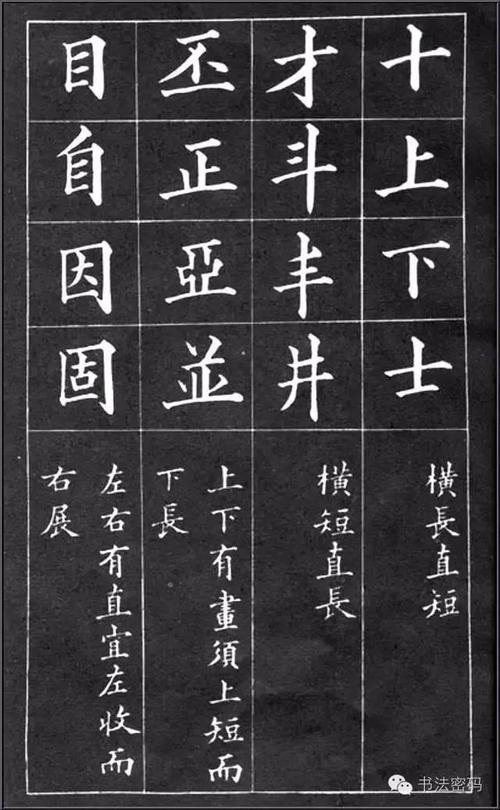 十上下士
橫長直短
才斗丰井
橫短直長
丕正亞並
上下有畫須上短而
下長
目自因固
左右有直宜左收而
右展
书法密码